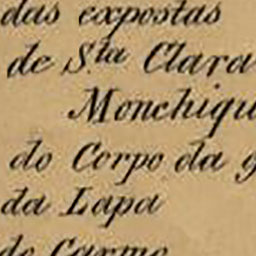 das expostas
de S.ta Clara
Monchiqu
do Corpo da g
da Lapa
do Carmo